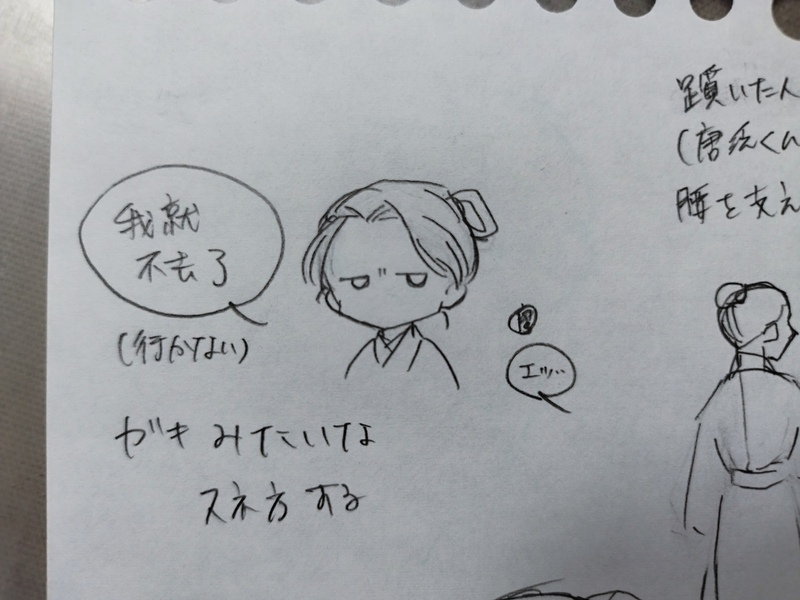 我就
不去了
(行かない)
ガキみたいな
スネ方する
エッ…
躓いた人
腰を支え